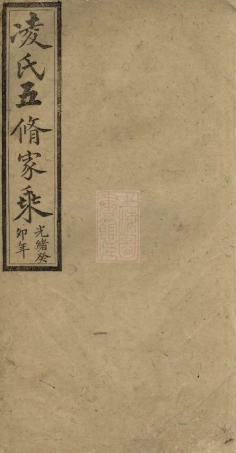 凌氏五脩家乘
光緒癸
卯年